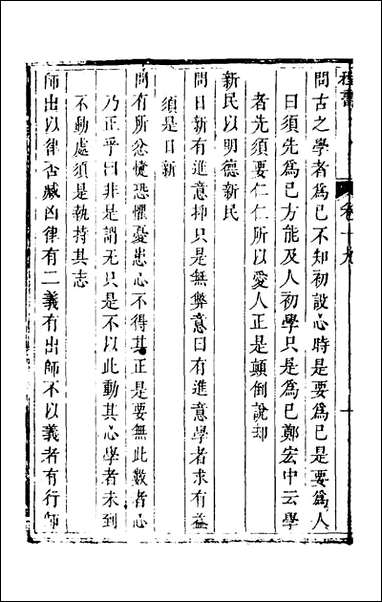 程書
卷十九
一
問古之學者爲己不知初設心時是要爲己是要爲人
曰須先爲己方能及人初學只是爲己鄭宏中云學
者先須要仁仁所以愛人正是顛倒說却
新民以明德新民
問日新有進意抑只是無弊意曰有進意學者求有益
須是日新
問有所忿懥恐懼憂患心不得其正是要無此數者心
乃正乎曰非是謂无只是不以此動其心學者未到
不動處須是執持其志
師出以律否臧凶律有二義有出師不以義者有行師